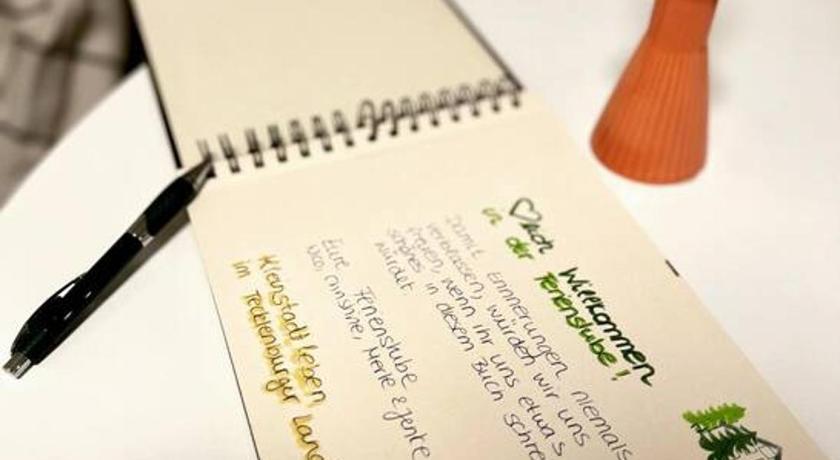 ♡lich Willkommen
in der Ferienstube!
Damit Erinnerungen niemals
verblassen, würden wir uns
freuen, wenn ihr uns etwas
schönes in diesem Buch schre
würdet
Eure Ferienstube
Nico, Merle & Jente
Kleinstadtleben
im Tecklenburger Land